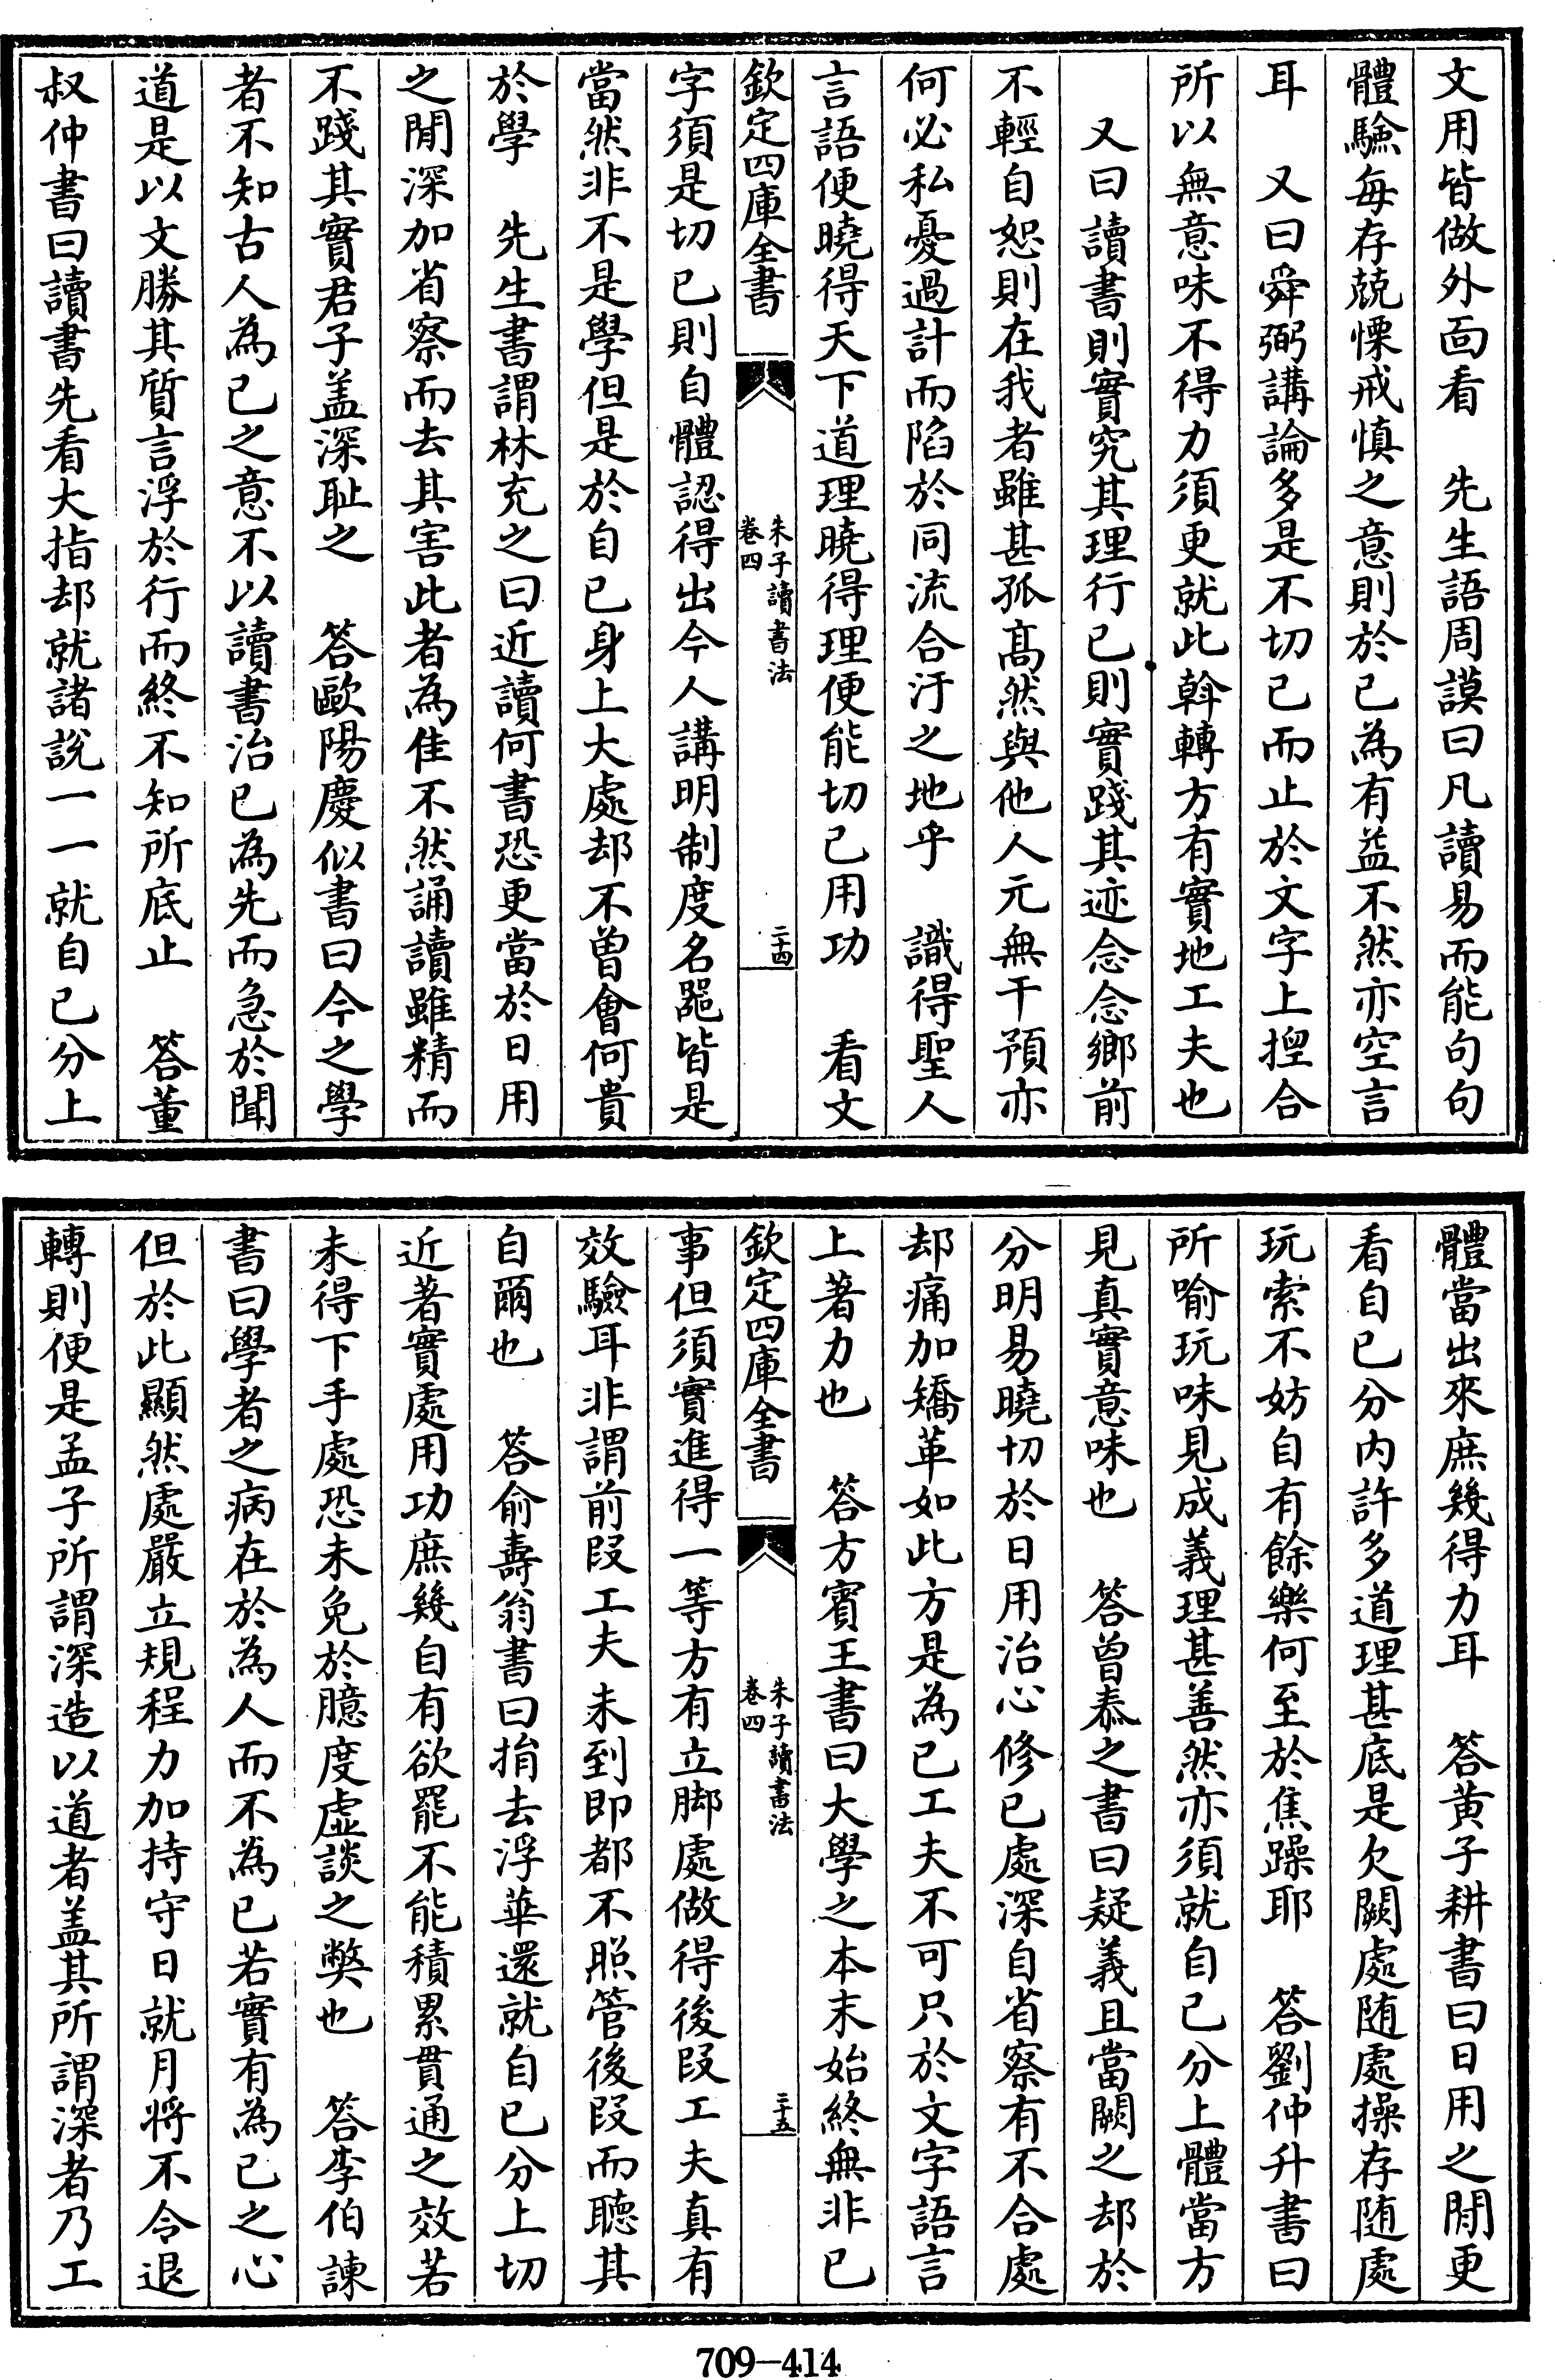 文用皆做外面看　先生語周謨曰凡讀易而能句句
體驗每存兢慄戒慎之意則於己為有益不然亦空言
耳　又曰舜弼講論多是不切己而止於文字上揑合
所以無意味不得力須更就此斡轉方有實地工夫也
又曰讀書則實究其理行己則實踐其迹念念鄉前
不輕自恕則在我者雖甚孤髙然與他人元無干預亦
何必私憂過計而陷於同流合汙之地乎　識得聖人
言語便曉得天下道理曉得理便能切己用功　看文
欽定四庫全書
朱子讀書法
卷四
二十四
字須是切己則自體認得出今人講明制度名噐皆是
當然非不是學但是於自己身上大處却不曾會何貴
於學　先生書謂林充之曰近讀何書恐更當於日用
之閒深加省察而去其害此者為佳不然誦讀雖精而
不踐其實君子盖深恥之　答歐陽慶似書曰今之學
者不知古人為己之意不以讀書治己為先而急於聞
道是以文勝其質言浮於行而終不知所底止　答董
叔仲書曰讀書先看大指却就諸說一一就自己分上
體當出來庶幾得力耳　答黄子耕書曰日用之閒更
看自己分内許多道理甚底是欠闕處随處操存随處
玩索不妨自有餘樂何至於焦躁耶　答劉仲升書曰
所喻玩味見成義理甚善然亦須就自己分上體當方
見真實意味也　答曽泰之書曰疑義且當闕之却於
分明易曉切於日用治心修己處深自省察有不合處
却痛加矯革如此方是為己工夫不可只於文字語言
上著力也　答方賓王書曰大學之本末始終無非己
欽定四庫全書
朱子讀書法
卷四
二十五
事但須實進得一等方有立脚處做得後段工夫真有
效驗耳非謂前段工夫未到即都不照管後段而聽其
自爾也　答俞壽翁書曰捐去浮華還就自己分上切
近著實處用功庶幾自有欲罷不能積累貫通之效若
未得下手處恐未免於臆度虚談之弊也　答李伯諫
書曰學者之病在於為人而不為己若實有為己之心
但於此顯然處嚴立規程力加持守日就月將不令退
轉則便是孟子所謂深造以道者盖其所謂深者乃工
709-414